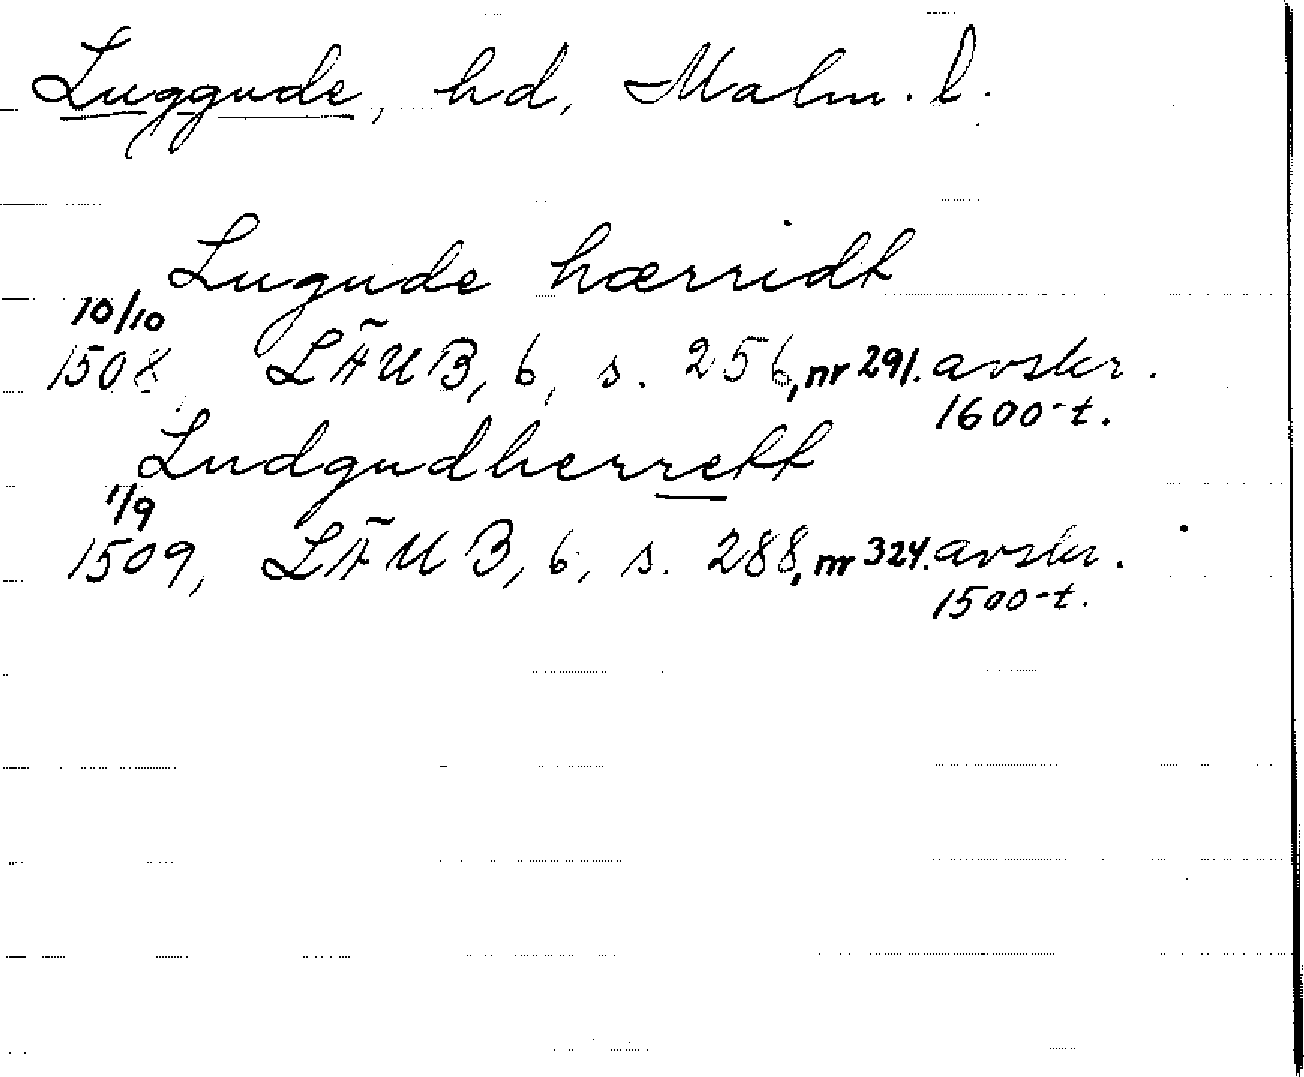 Luggude, hd, Malm. l.
Lugude hærridt
10/10
1508, LÄUB, 6, s. 256, nr 291. avskr.
1600-t.
Ludgudherrett
1/9
1509, LÄUB, 6, s. 288, nr 324. avskr.
1500-t.